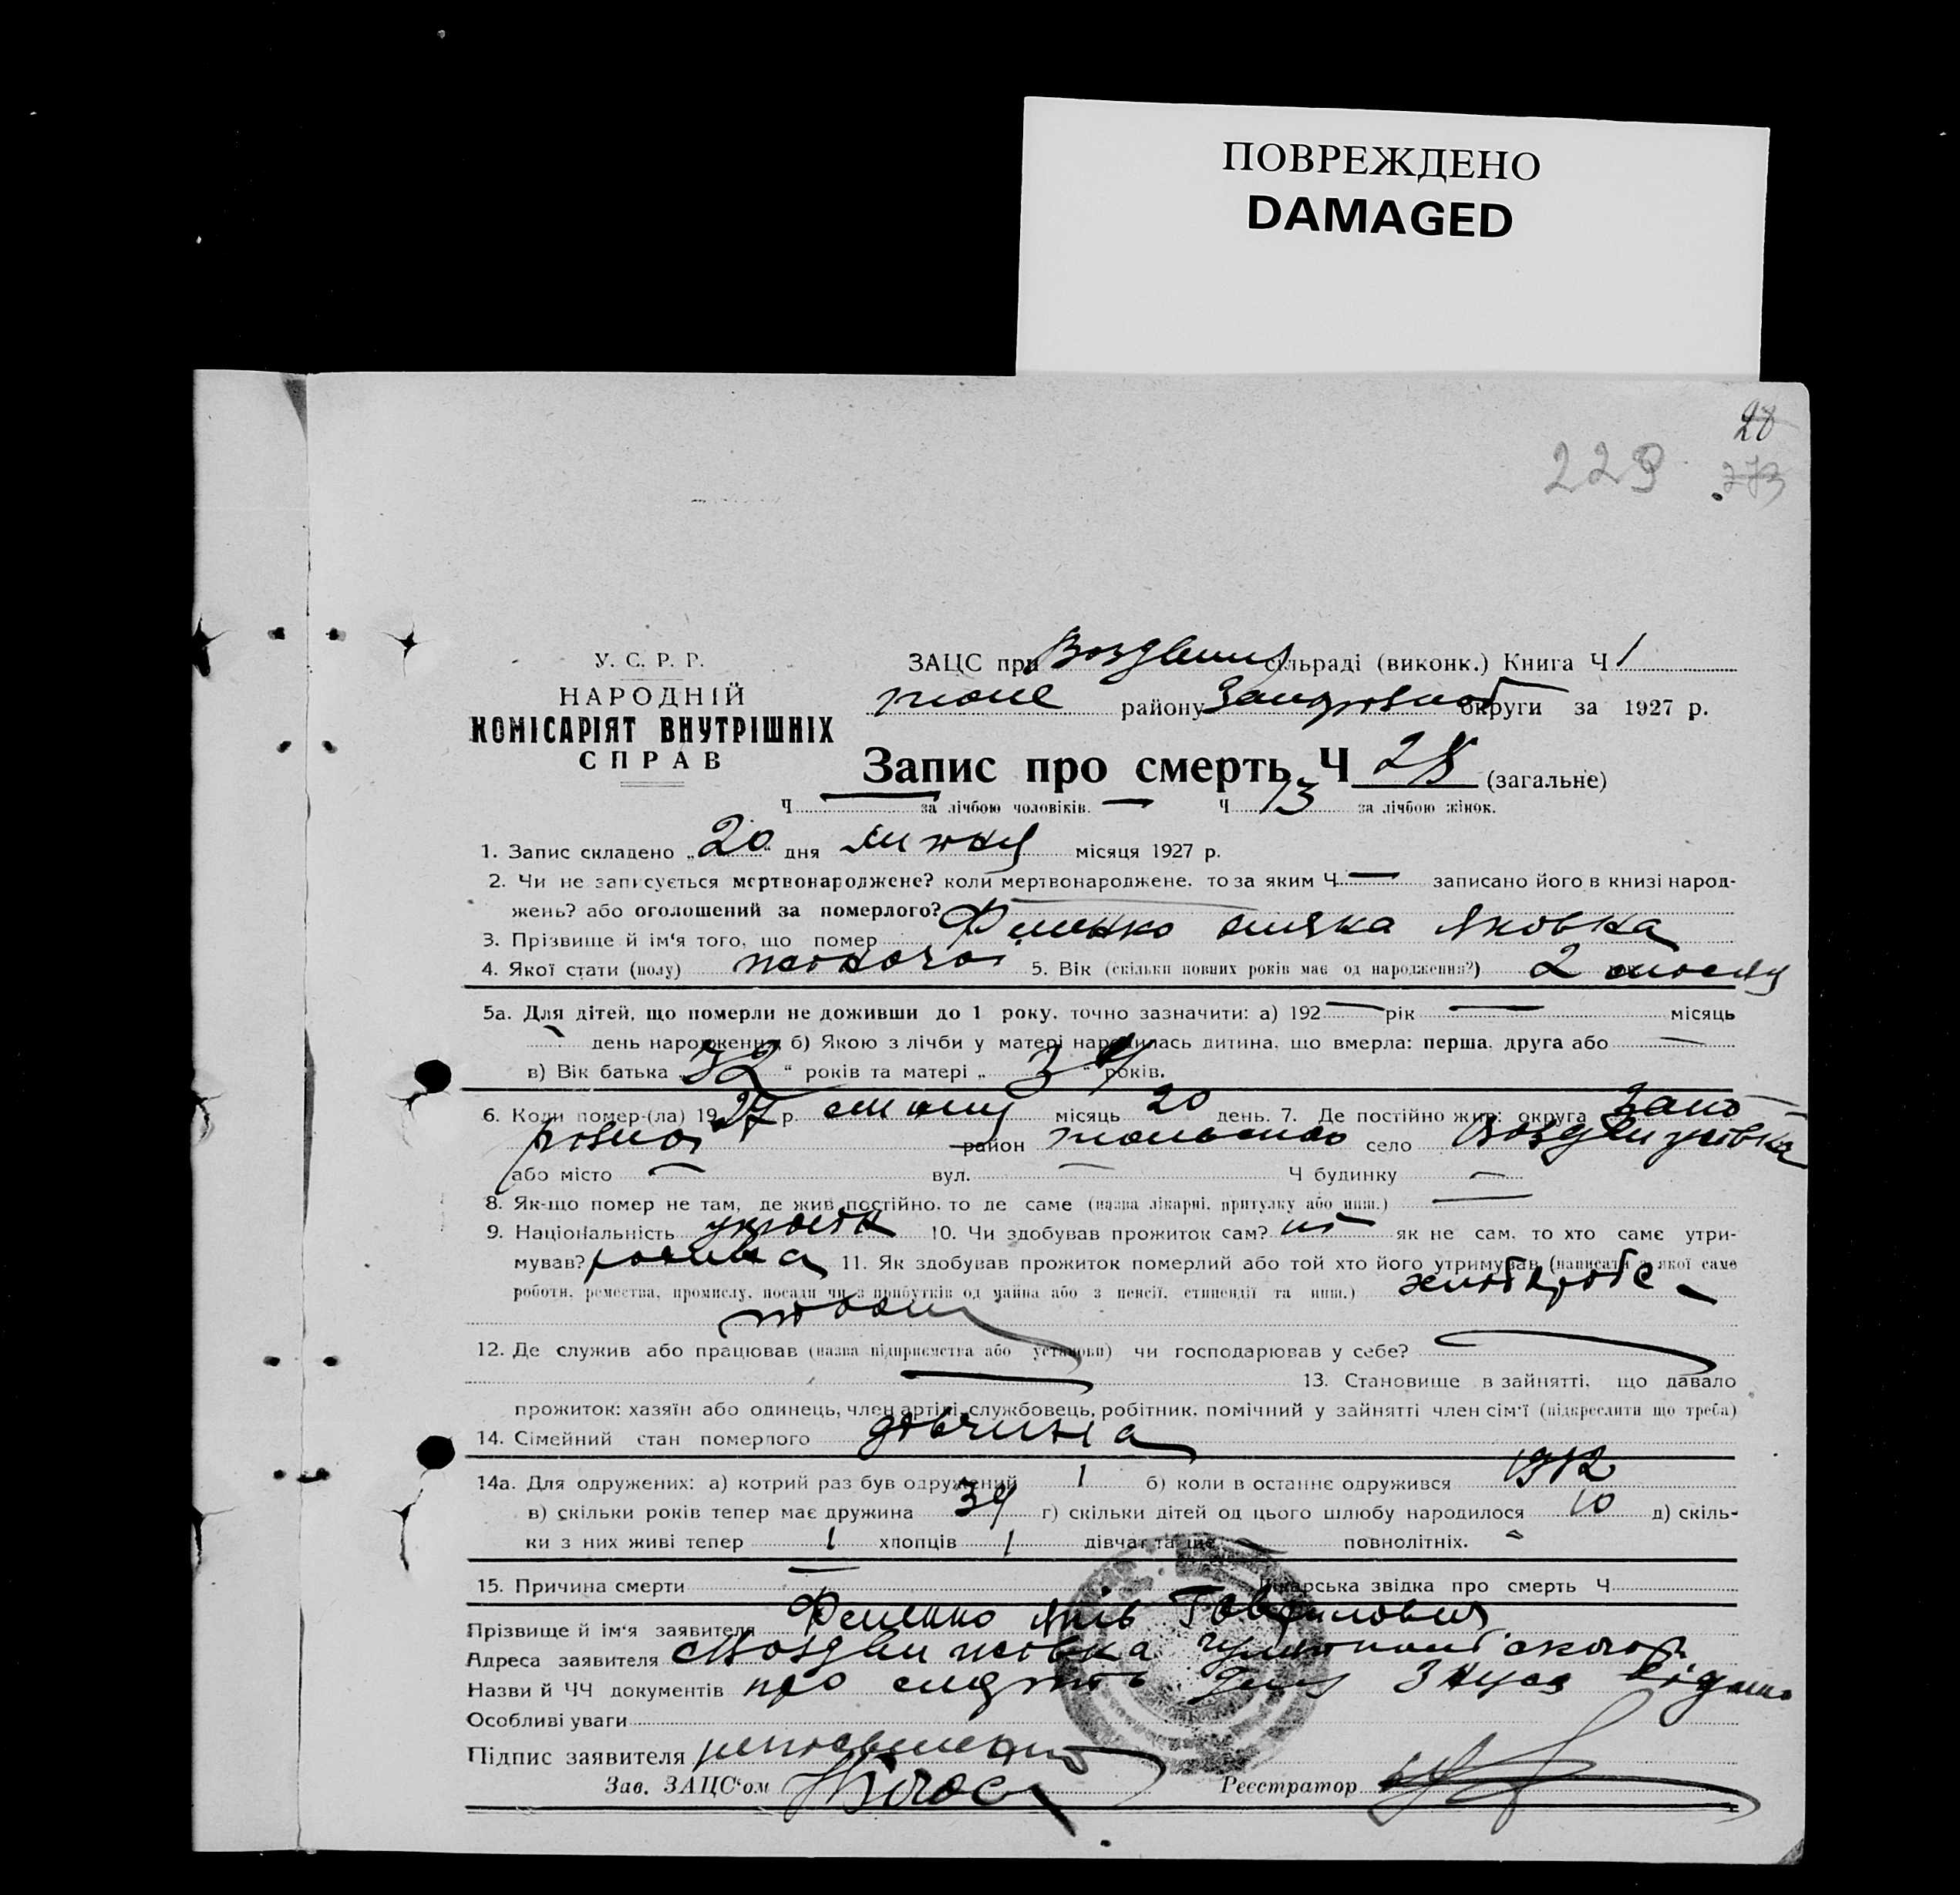 ПОВРЕЖДЕНО
DAMAGED
28
229
273
У. С. Р. Р.
НАРОДНІЙ
КОМІСАРІЯТ ВНУТРІШНІХ
СПРАВ
ЗАЦС при сільраді (виконк.) Книга Ч 1
району округи за 1927 р.
Запис про смерть Ч 28 (загальне)
Ч — за лічбою чоловіків. — Ч 13 за лічбою жінок.
1. Запис складено „20“ дня місяця 1927 р.
2. Чи не записується мертвонароджене? коли мертвонароджене, то за яким Ч — записано його в книзі народ-
жень? або оголошений за померлого?
3. Прізвище й ім'я того, що помер Яковка
4. Якої стати (полу) жіночої 5. Вік (скільки повних років має од народження?) 2
5а. Для дітей, що померли не доживши до 1 року, точно зазначити: а) 192 — рік — місяць
— день народження б) Якою з лічби у матері народилась дитина, що вмерла: перша, друга або —
в) Вік батька „32“ років та матері „34“ років.
6. Коли помер-(ла) 1927 р. місяць 20 день. 7. Де постійно жив: округа Запо-
район село Воздвижівка
або місто — вул. — Ч будинку —
8. Як-що помер не там, де жив постійно, то де саме (назва лікарні, притулку або инш.) —
9. Національність 10. Чи здобував прожиток сам? ні як не сам, то хто саме утри-
мував? 11. Як здобував прожиток померлий або той хто його утримував (написати з якої саме
роботи, ремества, промислу, посади чи з прибутків од майна або з пенсії, стипендії та инш.) хліборобс-
твом
12. Де служив або працював (назва підприємства або установи) чи господарював у себе? —
— 13. Становище в зайнятті, що давало
прожиток: хазяїн або одинець, член артілі, службовець, робітник, помічний у зайнятті член сім'ї (підкреслити що треба)
14. Сімейний стан померлого дівчина
14а. Для одружених: а) котрий раз був одружений 1 б) коли в останнє одружився 1912
в) скільки років тепер має дружина 34 г) скільки дітей од цього шлюбу народилося 10 д) скіль-
ки з них живі тепер 1 хлопців 1 дівчат та ще — повнолітніх.
15. Причина смерти — Лікарська звідка про смерть Ч
Прізвище й ім'я заявителя Яків Гаврилович
Адреса заявителя Воздвижівка
Назви й ЧЧ документів про смерть
Особливі уваги
Підпис заявителя
Зав. ЗАЦС'ом Реєстратор